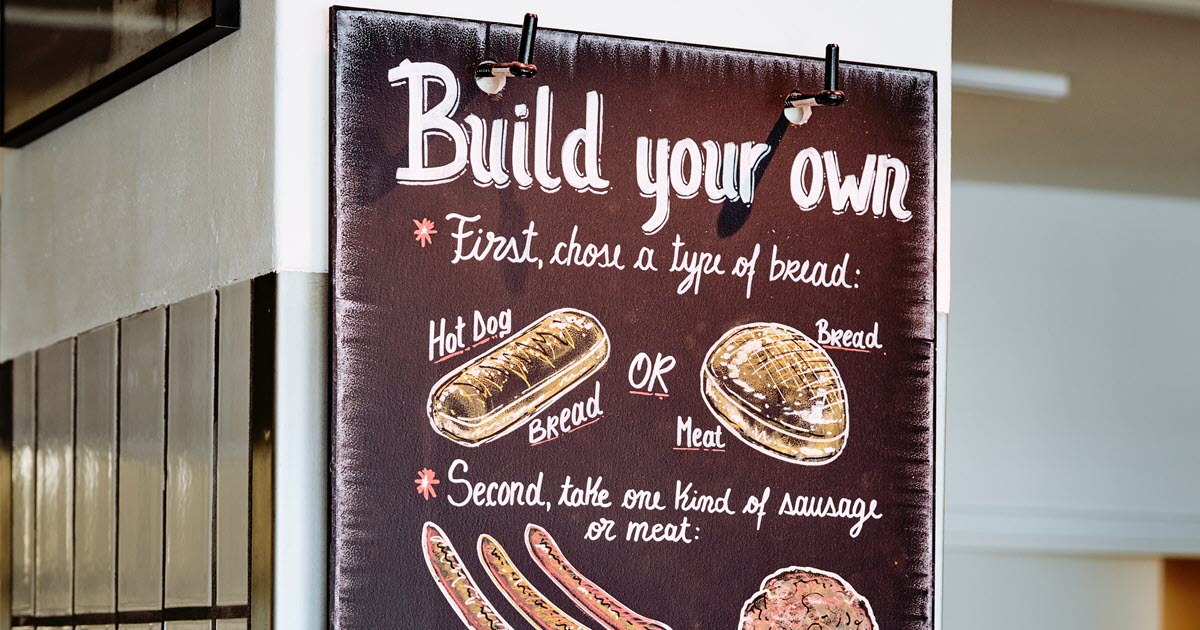 Build your own
* First, chose a type of bread:
Hot Dog
Bread
OR
Bread
Meat
* Second, take one kind of sausage
or meat: